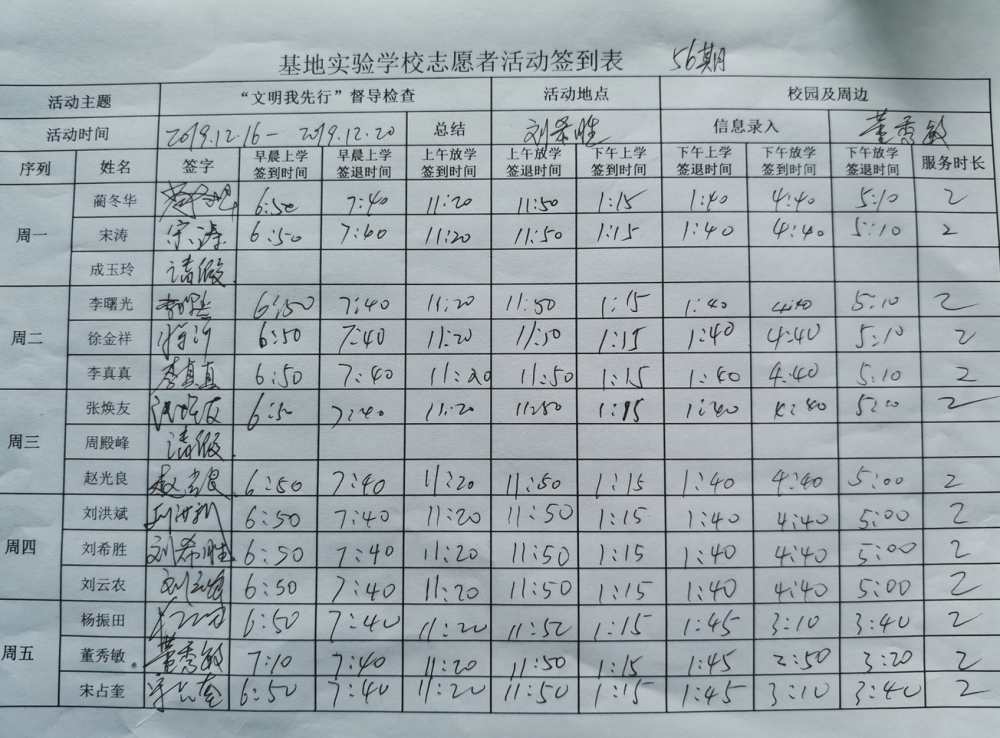 基地实验学校志愿者活动签到表 56期
活动主题 “文明我先行”督导检查 活动地点 校园及周边
活动时间 2019.12.16—2019.12.20 总结 刘希胜 信息录入 董秀敏
序列 姓名 签字 早晨上学签到时间 早晨上学签退时间 上午放学签到时间 上午放学签退时间 下午上学签到时间 下午上学签退时间 下午放学签到时间 下午放学签退时间 服务时长
周一 蔺冬华 6:50 7:40 11:20 11:50 1:15 1:40 4:40 5:10 2
宋涛 宋涛 6:50 7:40 11:20 11:50 1:15 1:40 4:40 5:10 2
成玉玲 请假
周二 李曙光 李曙光 6:50 7:40 11:20 11:50 1:15 1:40 4:40 5:10 2
徐金祥 6:50 7:40 11:20 11:50 1:15 1:40 4:40 5:10 2
李真真 李真真 6:50 7:40 11:20 11:50 1:15 1:40 4:40 5:10 2
周三 张焕友 张焕友 6:50 7:40 11:20 11:50 1:15 1:40 4:40 5:10 2
周殿峰 请假
赵光良 赵光良 6:50 7:40 11:20 11:50 1:15 1:40 4:40 5:00 2
周四 刘洪斌 刘洪斌 6:50 7:40 11:20 11:50 1:15 1:40 4:40 5:00 2
刘希胜 刘希胜 6:50 7:40 11:20 11:50 1:15 1:40 4:40 5:00 2
刘云农 刘云农 6:50 7:40 11:20 11:50 1:15 1:40 4:40 5:00 2
周五 杨振田 6:50 7:40 11:20 11:50 1:15 1:45 3:10 3:40 2
董秀敏 董秀敏 7:10 7:40 11:20 11:50 1:15 1:45 2:50 3:20 2
宋占奎 宋占奎 6:50 7:40 11:20 11:50 1:15 1:45 3:10 3:40 2